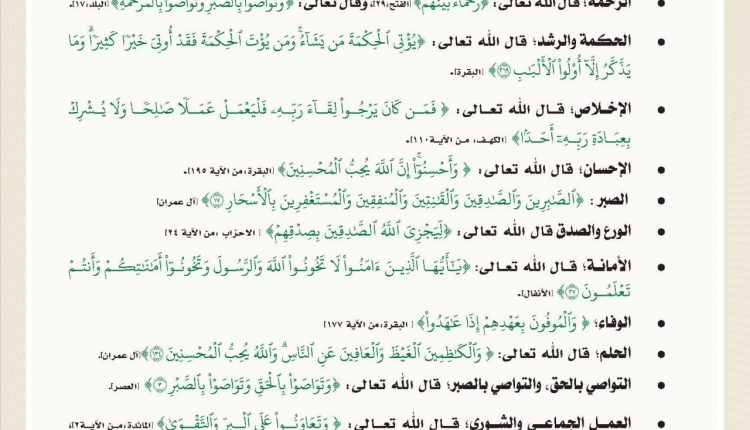 الرحمة؛ قال الله تعالى: ﴿رُحَمَآءُ بَيۡنَهُمۡ﴾ [الفتح:٢٩]، وقال تعالى: ﴿وَتَوَاصَوۡاْ بِٱلصَّبۡرِ وَتَوَاصَوۡاْ بِٱلۡمَرۡحَمَةِ﴾ [البلد:١٧].
• الحكمة والرشد؛ قال الله تعالى: ﴿يُؤۡتِي ٱلۡحِكۡمَةَ مَن يَشَآءُۚ وَمَن يُؤۡتَ ٱلۡحِكۡمَةَ فَقَدۡ أُوتِيَ خَيۡرٗا كَثِيرٗاۗ وَمَا
يَذَّكَّرُ إِلَّآ أُوْلُواْ ٱلۡأَلۡبَٰبِ ٢٦٩﴾ [البقرة].
• الإخلاص؛ قال الله تعالى: ﴿ فَمَن كَانَ يَرۡجُواْ لِقَآءَ رَبِّهِۦ فَلۡيَعۡمَلۡ عَمَلٗا صَٰلِحٗا وَلَا يُشۡرِكۡ
بِعِبَادَةِ رَبِّهِۦٓ أَحَدَۢا﴾ [الكهف، من الآية ١١٠].
• الإحسان؛ قال الله تعالى: ﴿ وَأَحۡسِنُوٓاْۚ إِنَّ ٱللَّهَ يُحِبُّ ٱلۡمُحۡسِنِينَ﴾ [البقرة، من الآية ١٩٥].
• الصبر : ﴿ٱلصَّٰبِرِينَ وَٱلصَّٰدِقِينَ وَٱلۡقَٰنِتِينَ وَٱلۡمُنفِقِينَ وَٱلۡمُسۡتَغۡفِرِينَ بِٱلۡأَسۡحَارِ ١٧﴾ [آل عمران]
• الورع والصدق قال الله تعالى: ﴿لِّيَجۡزِيَ ٱللَّهُ ٱلصَّٰدِقِينَ بِصِدۡقِهِمۡ﴾ [ الاحزاب ،من الآية ٢٤]
• الأمانة؛ قال الله تعالى: ﴿يَٰٓأَيُّهَا ٱلَّذِينَ ءَامَنُواْ لَا تَخُونُواْ ٱللَّهَ وَٱلرَّسُولَ وَتَخُونُوٓاْ أَمَٰنَٰتِكُمۡ وَأَنتُمۡ
تَعۡلَمُونَ ٢٧﴾ [الأنفال].
• الوفاء؛ ﴿ وَٱلۡمُوفُونَ بِعَهۡدِهِمۡ إِذَا عَٰهَدُواْ﴾ [ البقرة، من الآية ١٧٧]
• الحلم؛ قال الله تعالى: ﴿ وَٱلۡكَٰظِمِينَ ٱلۡغَيۡظَ وَٱلۡعَافِينَ عَنِ ٱلنَّاسِۗ وَٱللَّهُ يُحِبُّ ٱلۡمُحۡسِنِينَ ١٣٤﴾ [آل عمران].
• التواصي بالحق، والتواصي بالصبر؛ قال الله تعالى: ﴿وَتَوَاصَوۡاْ بِٱلۡحَقِّ وَتَوَاصَوۡاْ بِٱلصَّبۡرِ ٣﴾ [العصر].
• العمل الجماعي والشورى؛ قال الله تعالى: ﴿ وَتَعَاوَنُواْ عَلَى ٱلۡبِرِّ وَٱلتَّقۡوَىٰ﴾ [المائدة، من الآية ٢]،